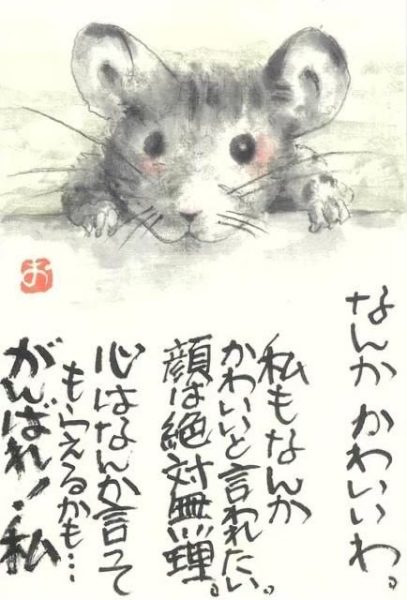 なんか かわいいわ。
私もなんか
かわいいと言われたい。
顔は絶対無理。
心はなんか言って
もらえるかも…
がんばれ！私
お